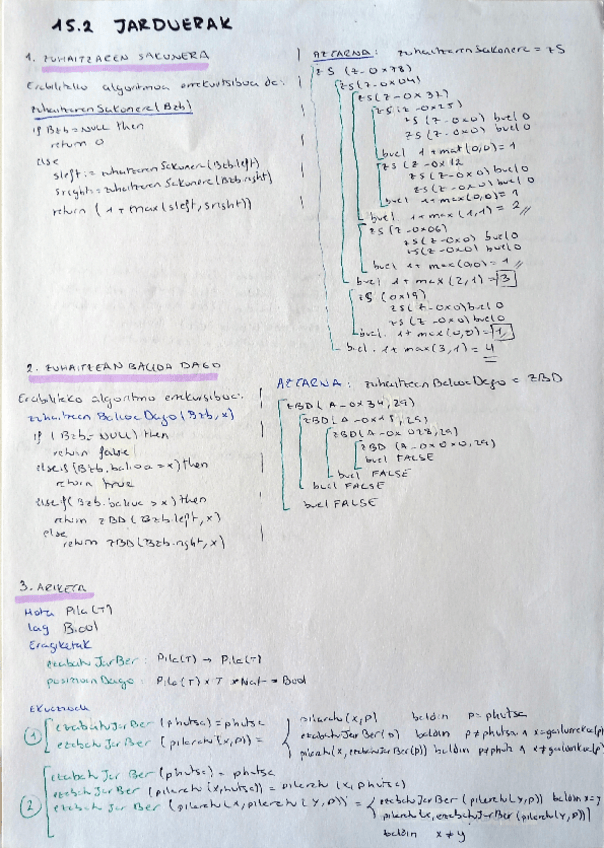 15.2 JARDUERAK
1. ZUHAITZAREN SAKONERA
Erabiliteko algoritmoa errekurtsiboa da:
zuhaitzarenSakonera(Bzb)
if Bzb=NULL then
return 0
else
sleft:= zuhaitzarenSakonera(Bzb.left)
sright:= zuhaitzarenSakonera(Bzb.right)
return (1+max(sleft, sright))
AZTARNA: zuhaitzarenSakonera = ZS
ZS (Z-0x78)
ZS(Z-0x04)
ZS(Z-0x37)
ZS(Z-0x25)
ZS (Z-0x0) buel 0
ZS (Z-0x0) buel 0
buel 1+max(0,0)=1
ZS(Z-0x12
ZS(Z-0x0) buel 0
ZS(Z-0x0) buel 0
buel 1+max(0,0)=1
buel 1+max(1,1)=2
ZS(Z-0x06)
ZS(Z-0x0) buel 0
ZS(Z-0x0) buel 0
buel 1+max(0,0)=1
buel 1+max(2,1)=3
ZS(0x19)
ZS(Z-0x0) buel 0
ZS(Z-0x0) buel 0
buel. 1+max(0,0)=1
buel. 1+max(3,1)=4
2. ZUHAITZEAN BALIOA DAGO
Erabiliteko algoritmo errekurtsiboa:
zuhaitzeanBalioaDago(Bzb,x)
if (Bzb=NULL) then
return false
elseif (Bzb.balioa=x) then
return true
elseif (Bzb.balioa>x) then
return ZBD(Bzb.left,x)
else
return ZBD(Bzb.right,x)
AZTARNA: zuhaitzeanBalioaDago = ZBD
ZBD(A-0x34,29)
ZBD(A-0x15,29)
ZBD(A-0x028,29)
ZBD (A-0x0x0,29)
buel FALSE
buel FALSE
buel FALSE
buel FALSE
3. ARIKETA
Mota Pila(T)
lag Bool
Eragiketak
ezabatuJarBer: Pila(T) → Pila(T)
posizioanDago: Pila(T) x T x Nat → Bool
Ekuazioak
1 ezabatuJarBer(phutsa)=phutsa
ezabatuJarBer(pilaratu(x,p))= pilaratu(x,p) baldin p=phutsa
ezabatuJarBer(p) baldin p≠phutsa ∧ x=gailurrekoa(p)
pilaratu(x,ezabatuJarBer(p)) baldin p≠phuts ∧ x≠gailurrekoa(p)
2 ezabatuJarBer(phutsa)=phutsa
ezabatuJarBer(pilaratu(x,phutsa))=pilaratu(x,phutsa)
ezabatuJarBer(pilaratu(x,pilaratu(y,p))= ezabatuJarBer(pilaratu(y,p)) baldin x=y
pilaratu(x,ezabatuJarBer(pilaratu(y,p)))
baldin x≠y